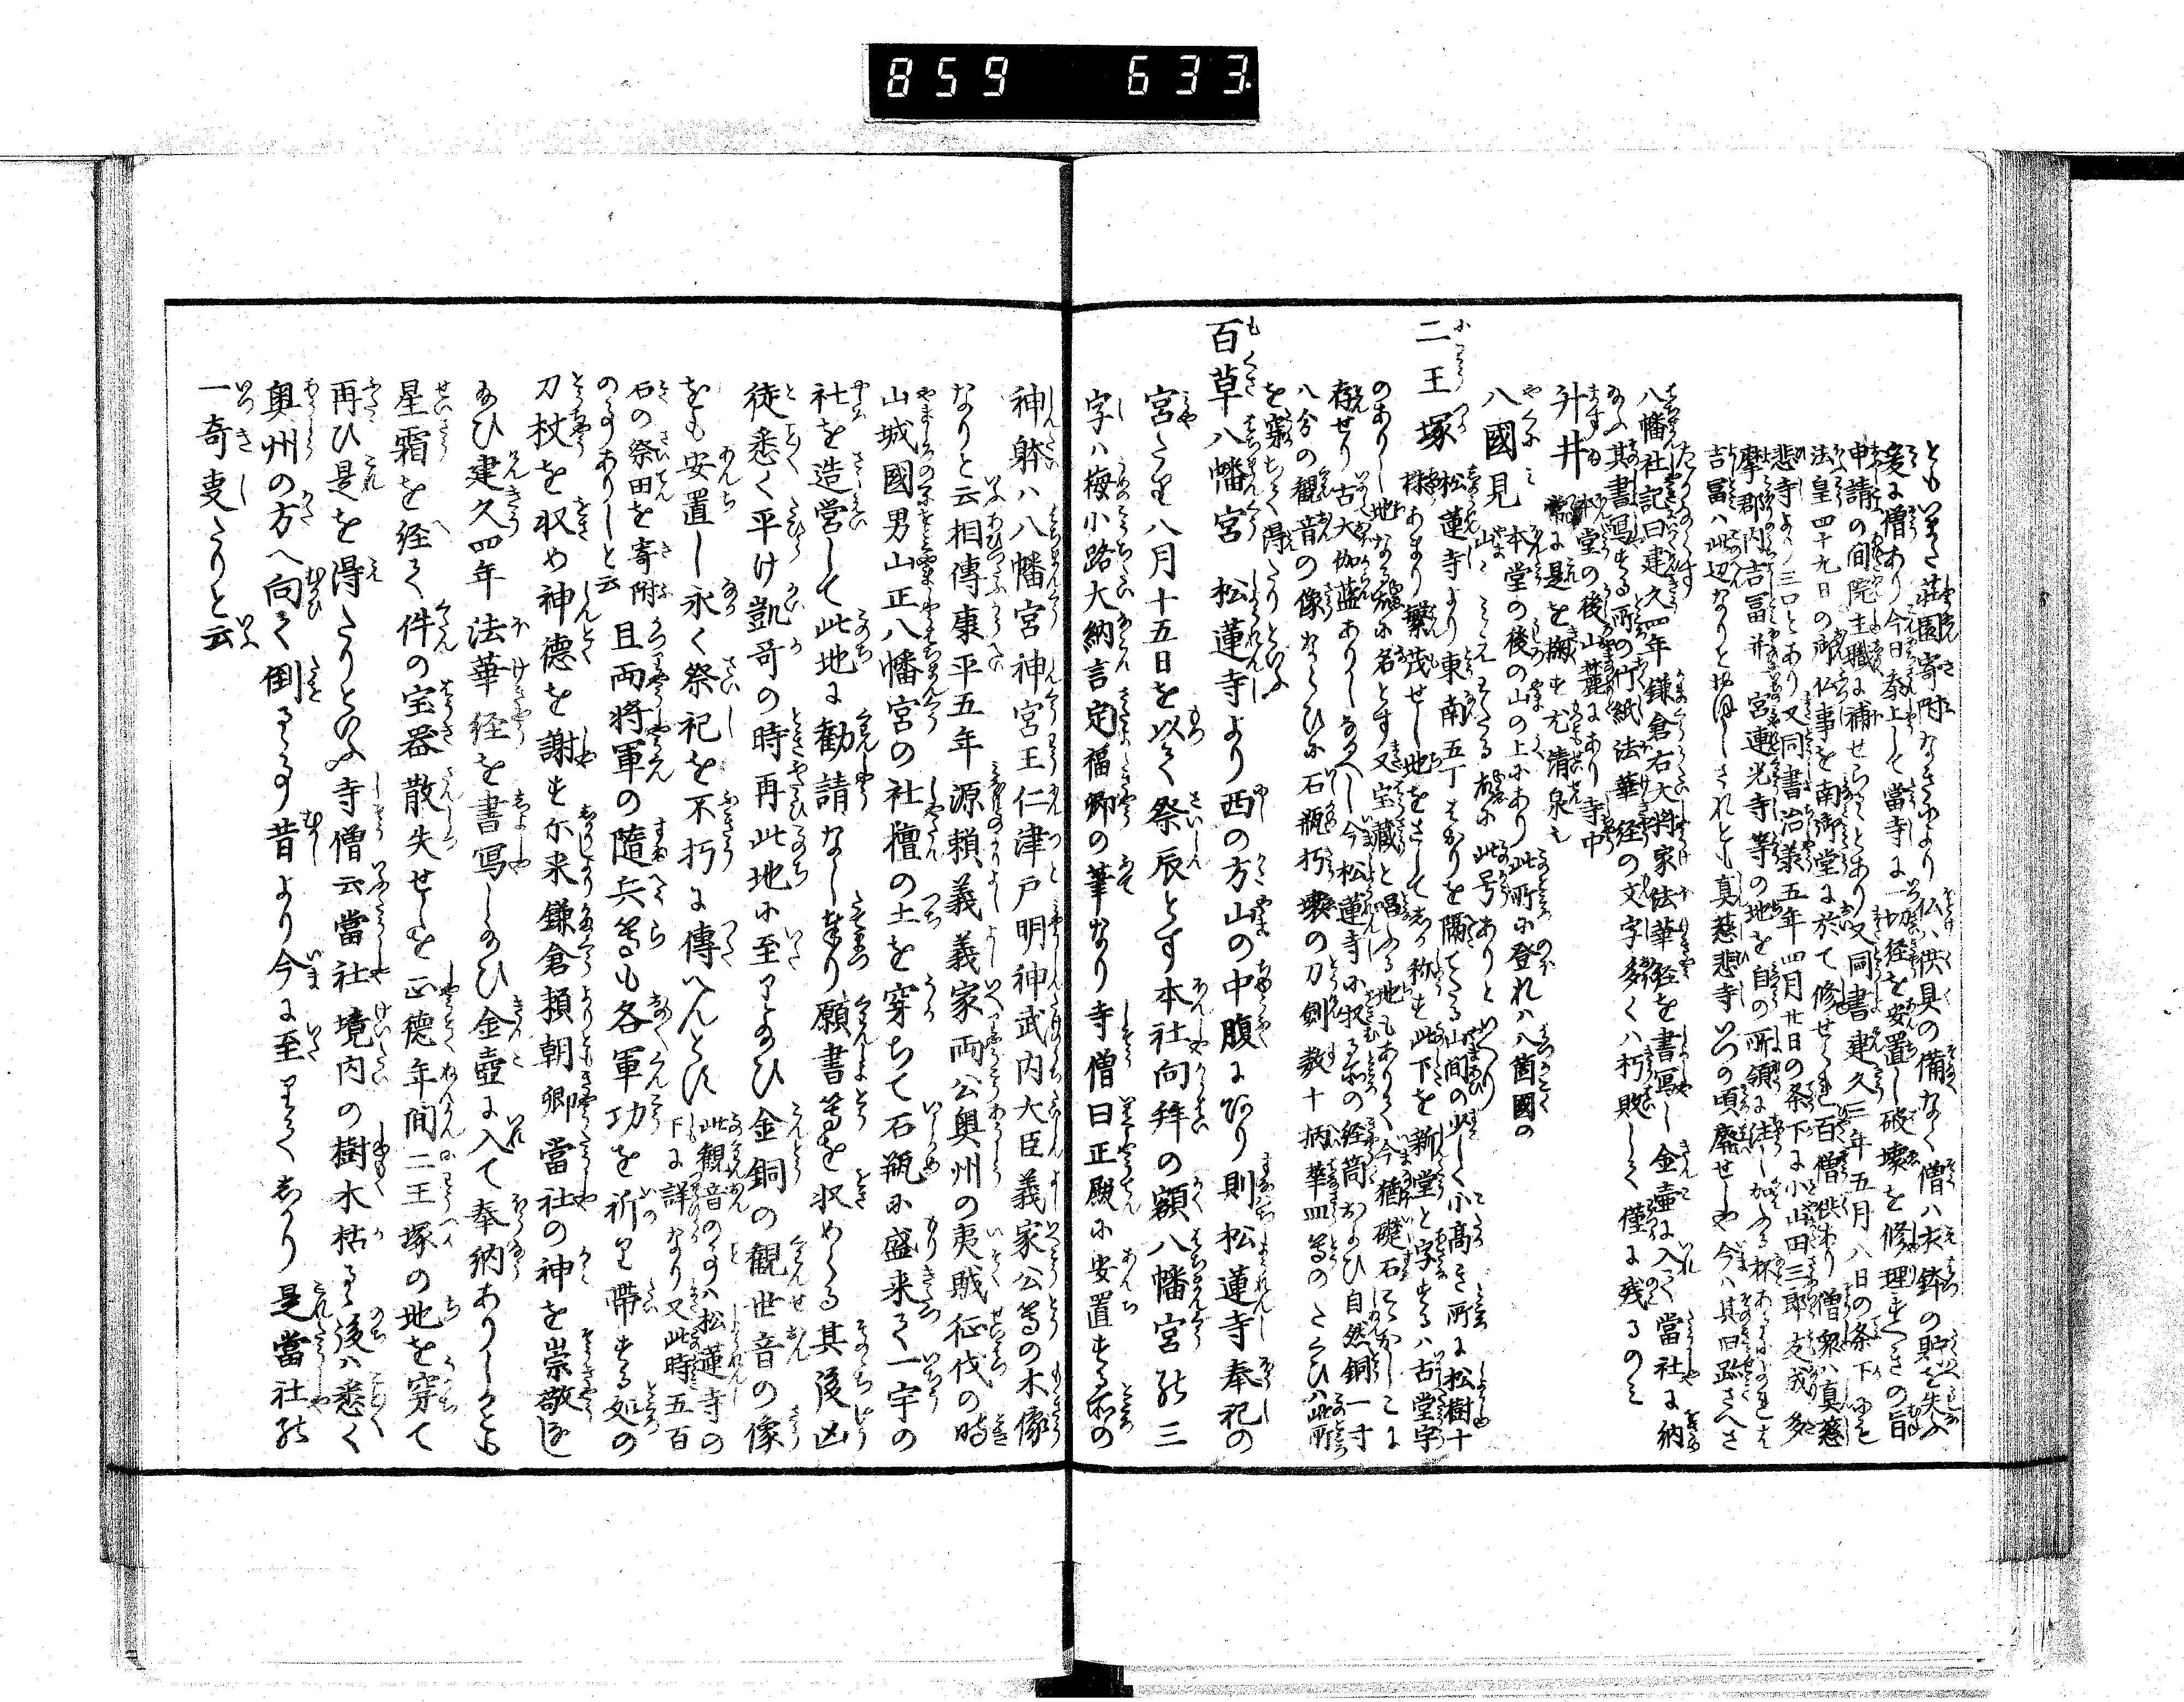 859 633
ともいまた荘園寄附なきにより仏ハ供具の備なく僧ハ衣鉢の貯を失ふ
爰に僧あり今日参上して當寺に一切経を安置し破壊を修理すへきの旨
申請の間院主職に補せらるとあり又同書建久三年五月八日の条下に
法皇四十九日の御仏事を南御堂に於て修せらる百僧供あり僧衆ハ真慈
悲寺より三口とあり又同書治養五年四月廿日の条下に小山田三郎重成多
摩郡内吉冨并一宮蓮光寺等の地を自の所領に注し加ふる
吉冨ハ此辺なりとおほしされとも真慈悲寺いつの頃廃せしや今ハ其旧趾さへさ
たかならす
八幡社記曰建久四年鎌倉右大将家法華経を書写し金壷に入て當社に納
給ふ其書写する所の竹紙法華経の文字多くハ朽敗して僅に残るのミ
升井 本堂の後山麓にあり寺中
常に是を掬す尤清泉也
八國見 本堂の後の山の上にあり此所に登れハ八箇國の
山々ミえわたる故に此号ありといへり
二王塚 松蓮寺より東南五丁はかりを隔てたる山間の少しく小高き所に松樹十
株あまり繁茂せし地をさして名称す此下を新堂と字するハ古堂宇
のありし地なる故に名とす又宝蔵と唱ふる地もありて今猶礎石
存せり古大伽藍ありしなるへし今松蓮寺に収る所の経筒および自然銅一寸
八分の観音の像ならひに石瓶朽壊の刀剣数十柄華皿等のたくひハ此所
を穿ちて得たりといふ
百草八幡宮 松蓮寺より西の方山の中腹にあり則松蓮寺奉祀の
宮たり八月十五日を以て祭辰とす本社向拝の額八幡宮能三
字ハ梅小路大納言定福卿の筆なり寺僧曰正殿に安置する所の
神躰ハ八幡宮神宮王仁津戸明神武内大臣義家公等の木像
なりと云相傳康平五年源頼義義家両公奥州の夷賊征伐の時
山城國男山正八幡宮の社檀の土を穿ちて石瓶に盛来て一宇の
社を造営して此地に勧請なし奉り願書等を収めらる其後凶
徒悉く平け凱哥の時再此地に至りたまひ金銅の観世音の像
をも安置し永く祭祀を不朽に傳へんとす 此観音の事ハ松蓮寺の
下に詳なり又此時五百
石の祭田を寄附
の事ありしと云 且両将軍の随兵等も各軍功を祈り帯する処の
刀杖を収め神徳を謝す尓来鎌倉頼朝卿當社の神を崇敬し
給ひ建久四年法華経を書写し給ひ金壷に入て奉納ありしかとも
星霜を経て件の宝器散失せしを正徳年間二王塚の地を穿て
再ひ是を得たりとのふ寺僧云當社境内の樹木枯る後ハ悉く
奥州の方へ向て倒るゝ事昔より今に至りてしかり是當社能
一奇事たりと云